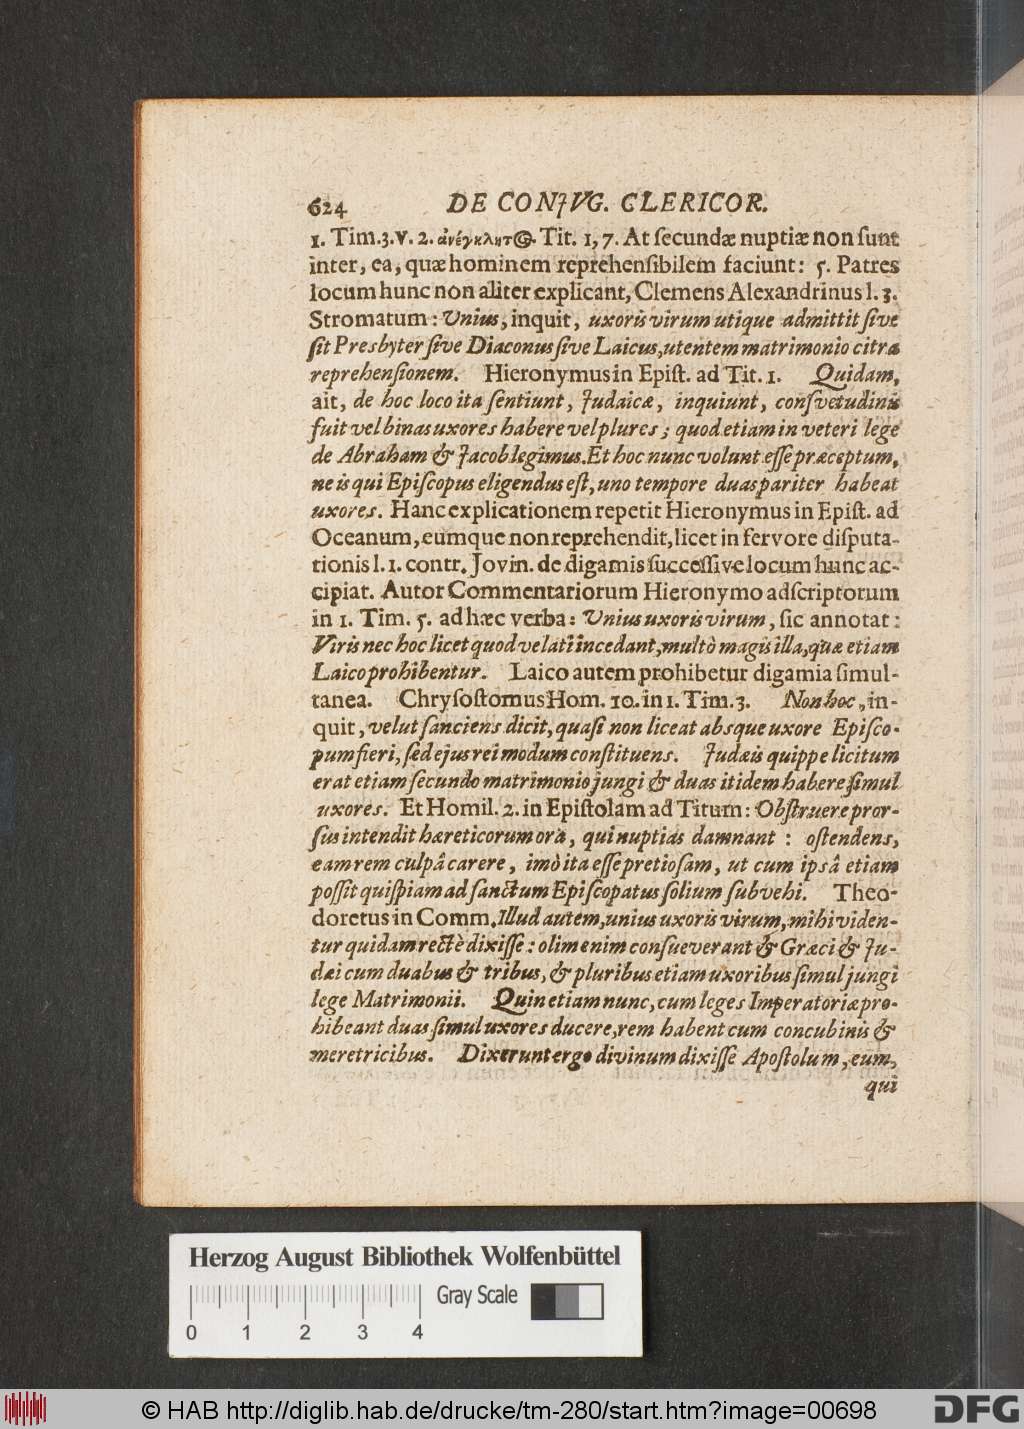 624 DE CONJVG. CLERICOR.
1. Tim. 3. v. 2. ἀνέγκλητ@. Tit. 1, 7. At ſecundæ nuptiæ non ſunt
inter, ea, quæ hominem reprehenſibilem faciunt: 5. Patres
locum hunc non aliter explicant, Clemens Alexandrinus l. 3.
Stromatum: Unius, inquit, uxoris virum utique admittit ſive
ſit Presbyter ſive Diaconus ſive Laicus, utentem matrimonio citra
reprehenſionem. Hieronymus in Epiſt. ad Tit. 1. Quidam,
ait, de hoc loco ita ſentiunt, Judaicæ, inquiunt, conſvetudinis
fuit vel binas uxores habere vel plures; quod etiam in veteri lege
de Abraham & Jacob legimus. Et hoc nunc volunt eſſe præceptum,
ne is qui Epiſcopus eligendus eſt, uno tempore duas pariter habeat
uxores. Hanc explicationem repetit Hieronymus in Epiſt. ad
Oceanum, eumque non reprehendit, licet in fervore diſputa-
tionis l. 1. contr. Jovin. de digamis ſucceſſive locum hunc ac-
cipiat. Autor Commentariorum Hieronymo adſcriptorum
in 1. Tim. 5. ad hæc verba: Unius uxoris virum, ſic annotat:
Viris nec hoc licet quod velati incedant, multò magis illa, quæ etiam
Laico prohibentur. Laico autem prohibetur digamia ſimul-
tanea. Chryſoſtomus Hom. 10. in 1. Tim. 3. Non hoc, in-
quit, velut ſanciens dicit, quaſi non liceat absque uxore Epiſco-
pum fieri, ſed ejus rei modum conſtituens. Judæis quippe licitum
erat etiam ſecundo matrimonio jungi & duas itidem habere ſimul
uxores. Et Homil. 2. in Epiſtolam ad Titum: Obſtruere pror-
ſus intendit hæreticorum ora, qui nuptias damnant: oſtendens,
eam rem culpâ carere, imò ita eſſe pretioſam, ut cum ipsâ etiam
poſſit quiſpiam ad ſanctum Epiſcopatus ſolium ſubvehi. Theo-
doretus in Comm. Illud autem, unius uxoris virum, mihi viden-
tur quidam rectè dixiſſe: olim enim conſueverant & Græci & Ju-
dæi cum duabus & tribus, & pluribus etiam uxoribus ſimul jungi
lege Matrimonii. Quin etiam nunc, cum leges Imperatoriæ pro-
hibeant duas ſimul uxores ducere, rem habent cum concubinis &
meretricibus. Dixerunt ergo divinum dixiſſe Apoſtolum, eum,
qui
Herzog August Bibliothek Wolfenbüttel
Gray Scale
0 1 2 3 4
© HAB http://diglib.hab.de/drucke/tm-280/start.htm?image=00698
DFG